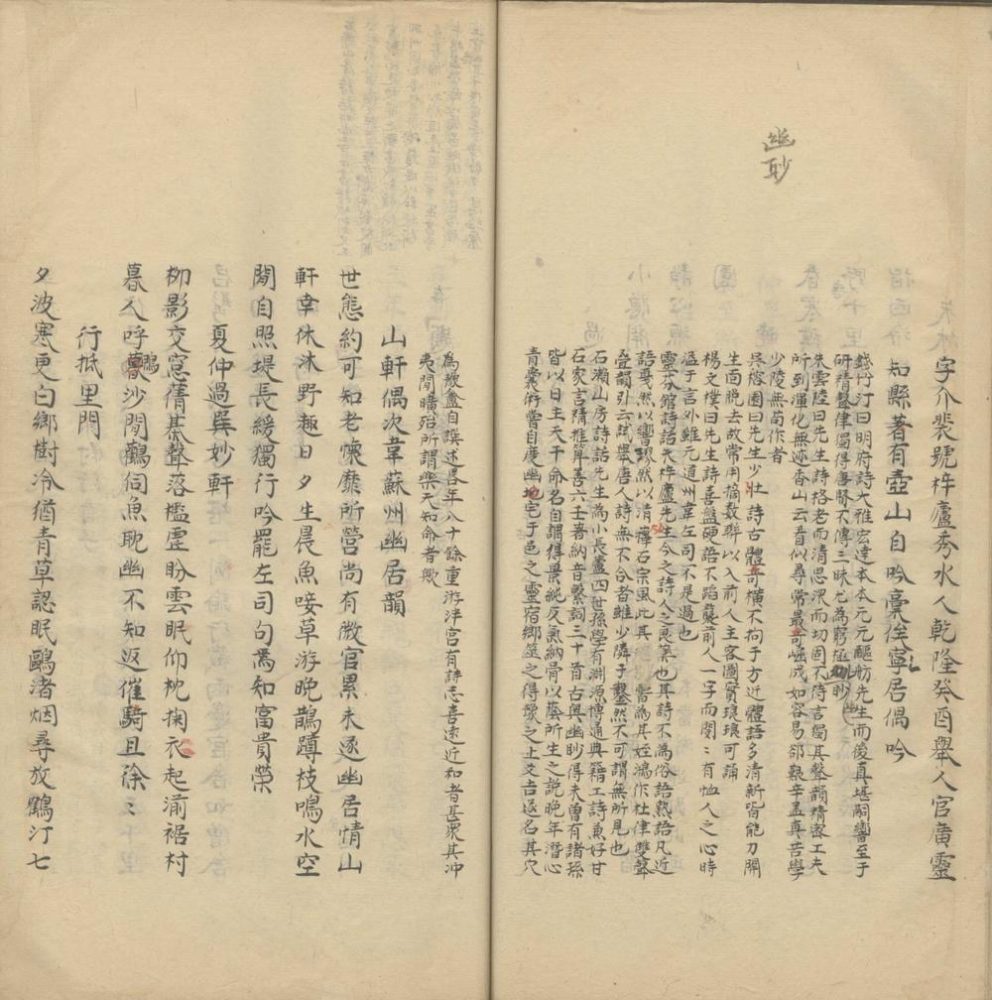 幽聁
字介裴號梓廬秀水人乾隆癸酉舉人官廣靈
知縣著有壺山自吟稾俟寧居偶吟
錢竹汀曰明府詩大雅宏達本本元元醧舫先生而後真堪嗣響至于
研精聲律獨得唐賢不傳三昧尤為窮極幽眇
朱雲陸曰先生詩格老而清思深而切固不待言卽其聲韻精審工夫
所到渾化無迹香山云看似尋常最奇崛成如容易卻艱辛蓋真苦學
少陵無茍作者
吳榕園曰先生少壯詩古體奇橫不拘于方近體語多清新皆能刀開
生面脫去故常用摘數聯以入前人主客圖實琅琅可誦
楊文樸曰先生詩喜盤硬語不蹈襲前人一字而閔〻有恤人之心時
溢于言外雖元道州韋左司不是過也
靈芬館詩話朱梓廬先生今之詩人之也其詩不為俗語熟語凡近
語戛然以響琅然以清蘀石宗風此其嘗為其姪鴻作杜律雙聲
疊韻引云試舉唐人詩無不合者雖少隣于鑿然不可謂無所見也
石瀨山房詩話先生為小長蘆四世孫學有淵源博通典籍工詩兼好甘
石家言隋推算善六壬喜納音繫詞三十首古奧幽眇得未曾有諸孫
皆以日主天干命名自謂得景純反氣納骨以蔭所生之說晚年潛心
青囊術嘗自度幽宅于邑之靈宿鄉筮之得爻之上文吉遂名其穴
為自誤述昌年八十餘重游泮宮有詩志喜遠近和者甚眾其沖
夷閒曠殆所謂樂天知命者歟
山軒偶次韋蘇州幽居韻
世態約可知老懷靡所營尚有微官累未遂幽居情山
軒幸休沐野趣日夕生晨魚唼草游晚鵲蹲枝鳴水空
閒自照堤長緩獨行吟罷左司句焉知富貴榮
夏仲過巽妙軒
柳影交窻蒨棊聲落檻虛盼雲眠仰枕掬衣起湔裾村
暮人呼鴨沙閒鶴伺魚耽幽不知返催騎且徐〻
行抵里門
夕波寒更白鄉樹冷猶青草認眠鷗渚烟尋放鶴汀七